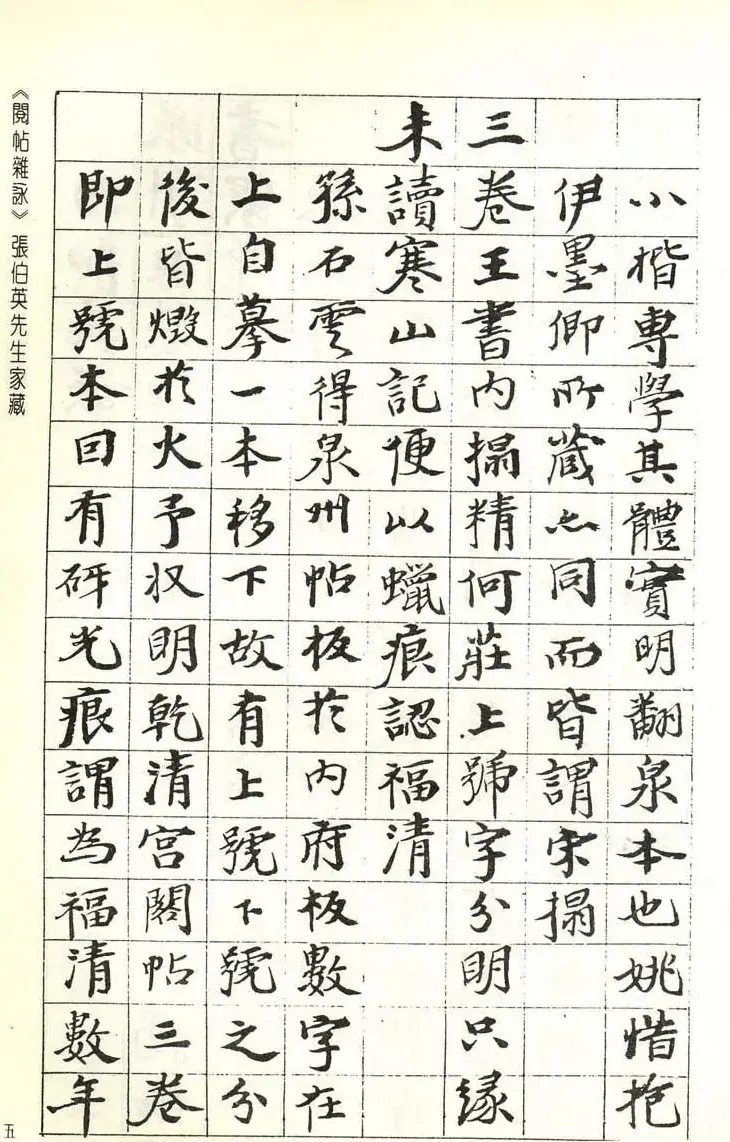 小楷專學其體實明翻泉本也姚惜抱
伊墨卿所藏亦同而皆謂宋搨
三卷王書內搨精何莊上號字分明只緣
未讀寒山記便以蠟痕認福清
孫石雲得泉州帖板於內府板數字在
上自摹一本移下故有上號下號之分
後皆燬於火予収明乾清宮閣帖三卷
即上號本回有砑光痕謂為福清數年
《閱帖雜詠》張伯英先生家藏
五